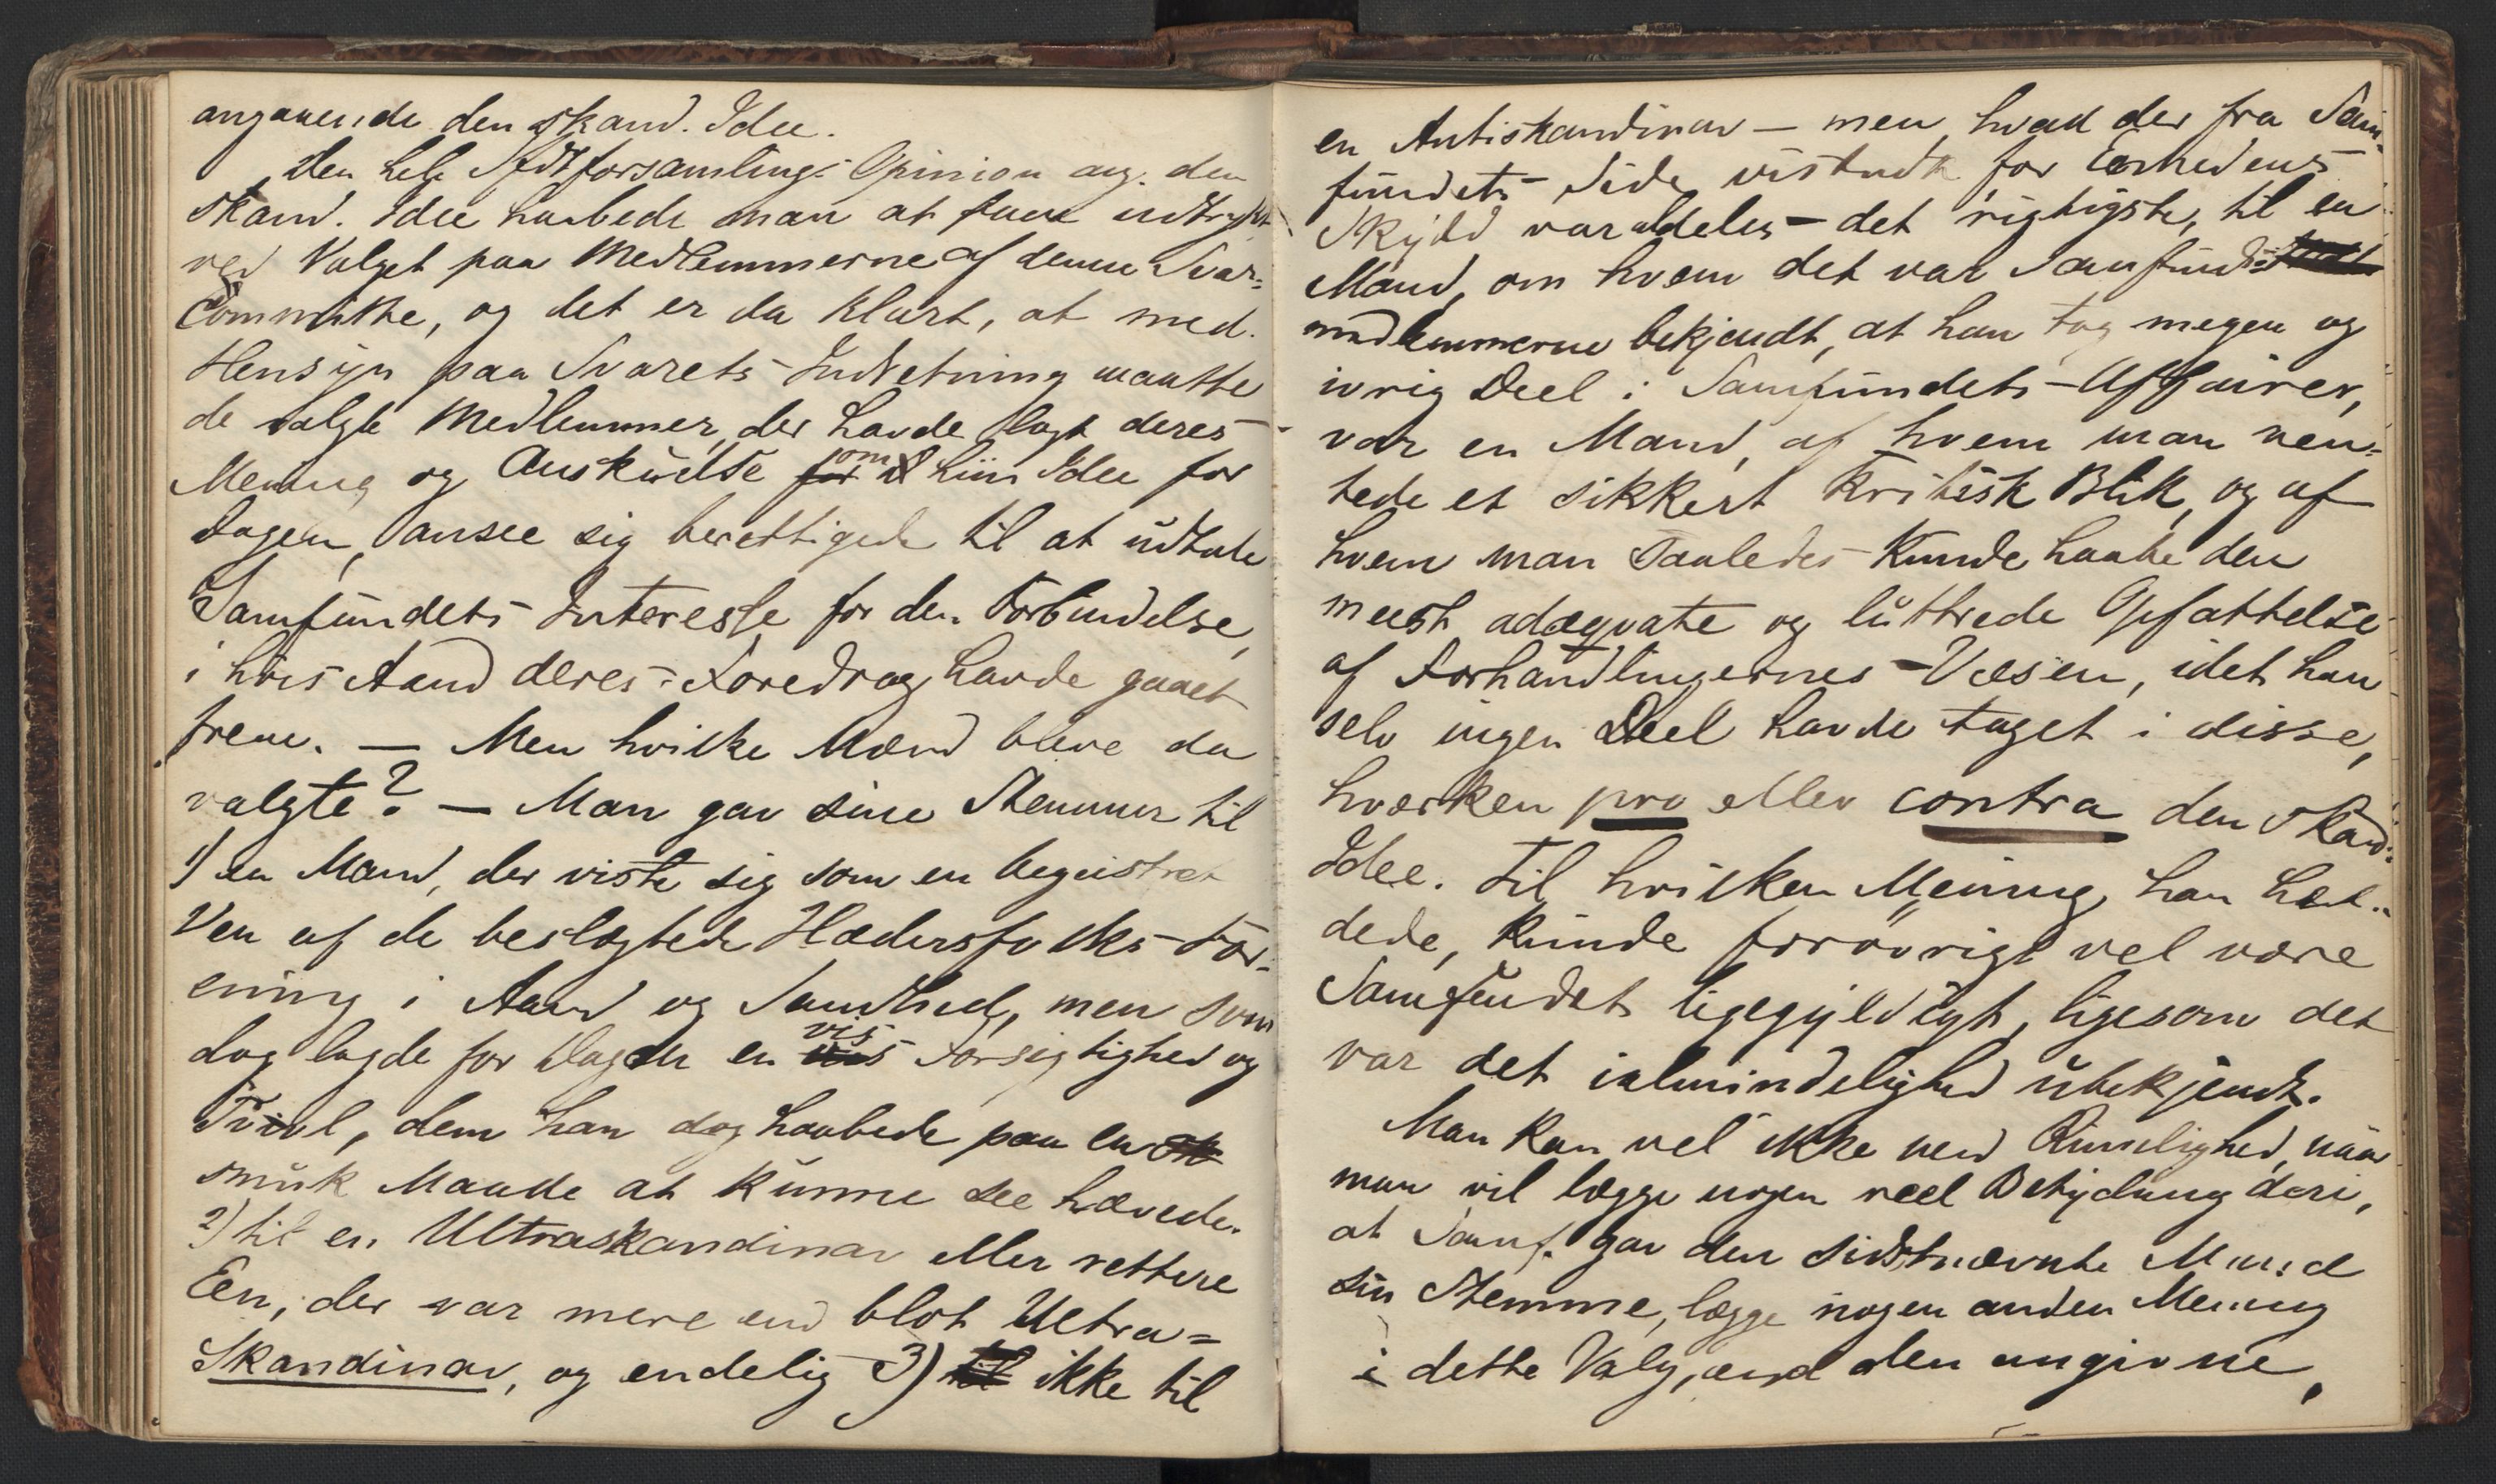 angaaende den skand. Idee.
Den hele Festforsamlings Opinion ang. den
skand. Idee haabede man at faae udtrykt
ved Valget paa Medlemmerne af denne Svar-
Committee, og det er da klart, at med
Hensyn paa Svarets Indretning maatte
de valgte Medlemmer, der havde lagt deres
Mening og Anskuelse for om hiin Idee for
Dagen, ansee sig berettigede til at udtale
Samfundets Interesse for den Forbindelse,
i hvis Aand deres Foredrag havde gaaet
frem. — Men hvilke Mænd bleve da
valgte? — Man gav sine Stemmer til
1) en Mand, der viste sig som en begeistret
Ven af de beslægtede Hædersfolks For-
ening i Aand og Sandhed, men som
dog lagde for Dagen en vis Forsigtighed og
Tvivl, dem han dog haabede paa en
smuk Maade at kunne see hævede.
2) til en Ultraskandinav eller rettere
Een, der var mere end blot Ultra=
Skandinav, og endelig 3) til ikke til
en Antiskandinav — men, hvad der fra Sam-
fundets Side vistnok for Enhedens
Skyld var aldeles det rigtigste, til en
Mand, om hvem det var Samfunds
medlemmerne bekjendt, at han tog megen og
ivrig Deel i Samfundets Affairer,
var en Mand, af hvem man ven-
tede et sikkert kritisk Blik, og af
hvem man saaledes kunde haabe den
meest adæqvate og luttrede Opfattelse
af Forhandlingernes Væsen, idet han
selv ingen Deel havde taget i disse,
hverken pro eller contra den skand.
Idee. Til hvilken Mening han hæl-
dede, kunde forøvrigt vel være
Samfundet ligegyldigt, ligesom det
var det i almindelighed ubekjendt.
Man kan vel ikke med Rimelighed, naar
man vil lægge nogen reel Betydning deri,
at Samf. gav den sidstnævnte Mand
sin Stemme, lægge nogen anden Mening
i dette Valg, end den angivne,